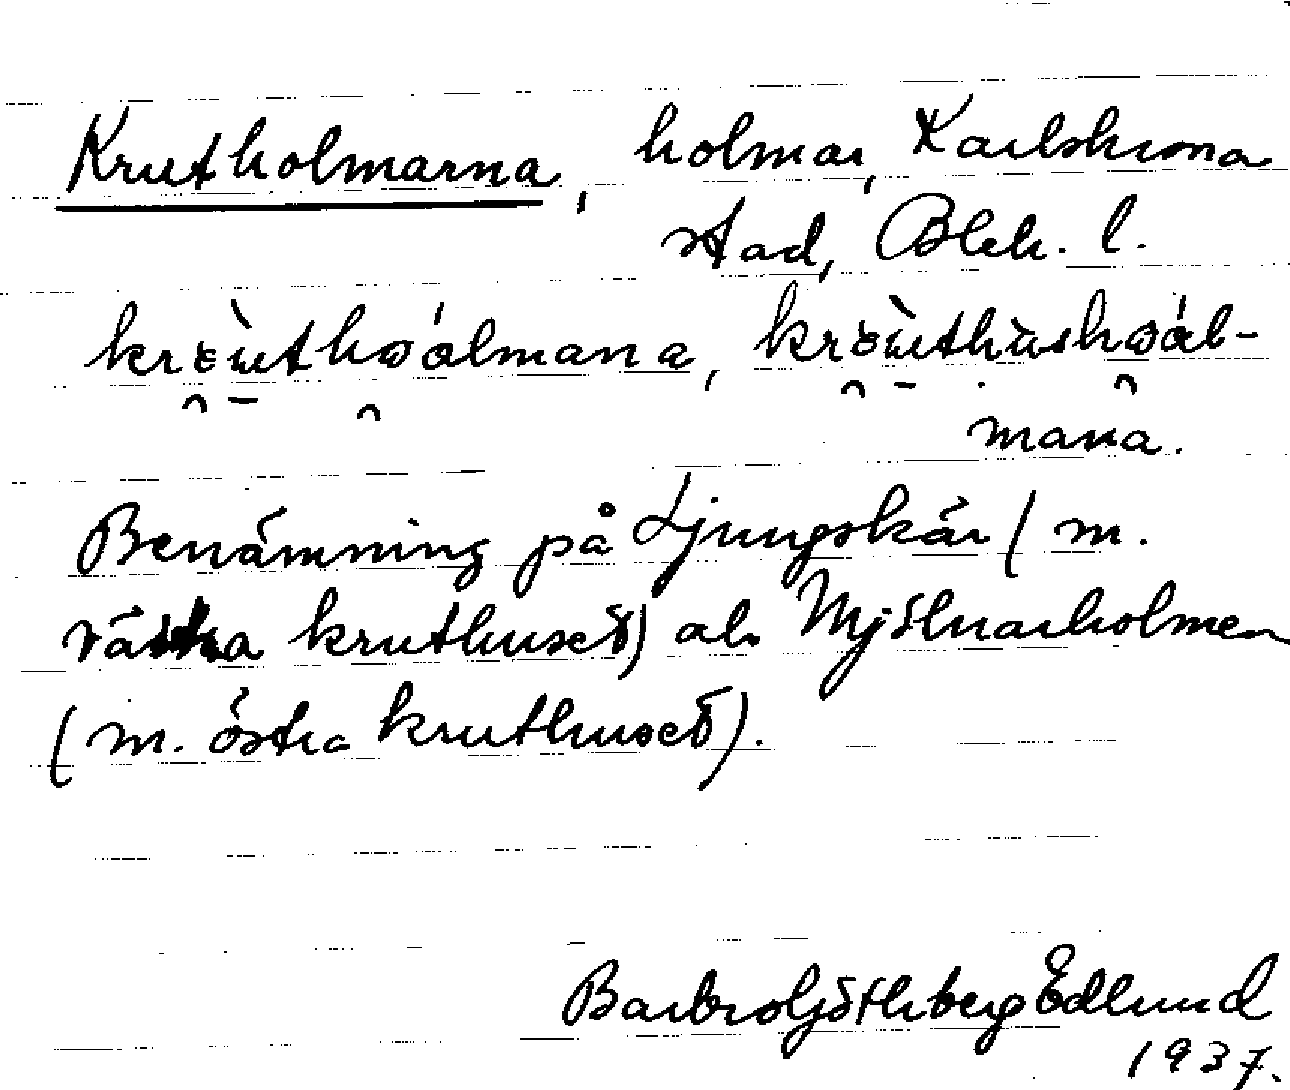 Krutholmarna, holmar, Karlskrona
stad, Blek. l.
krɛ̀uthɷálmana, krɛ̀uthùshɷál-
mana.
Benämning på Ljungskär (m.
västra kruthuset) al. Mjölnarholmen
(m. östra kruthuset).
Barbro Göthberg Edlund
1937.